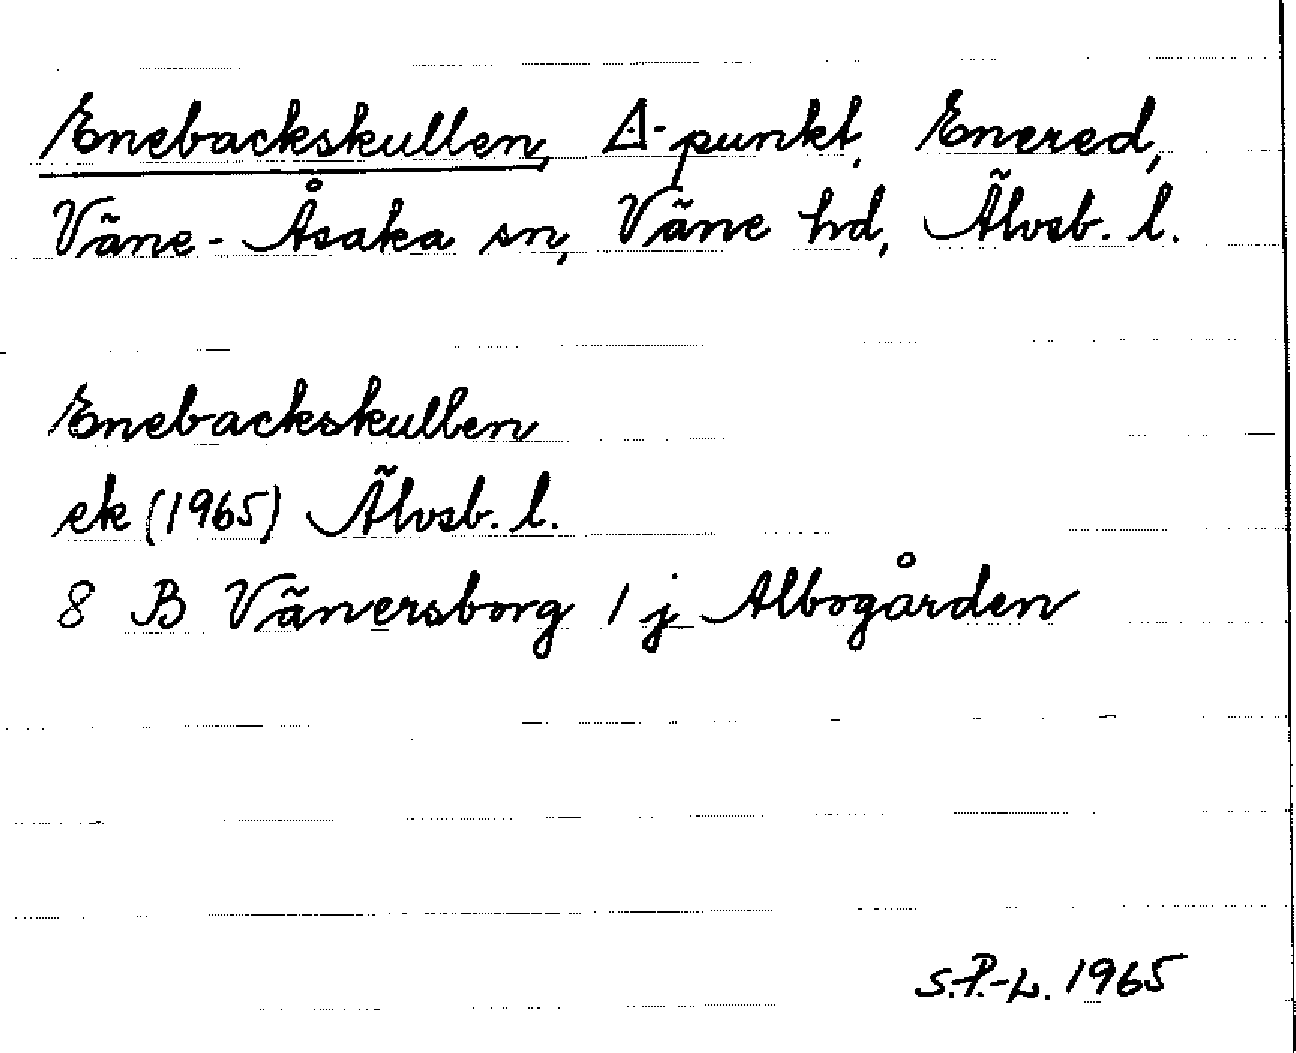 Enebackskullen, Δ-punkt, Enered,
Väne-Åsaka sn, Väne hd, Älvsb. l.
Enebackskullen
ek (1965) Älvsb. l.
8 B Vänersborg 1 j Albogården
S.P.-L. 1965